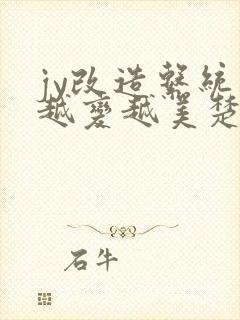 jy改造系統
越變越美楚
石牛